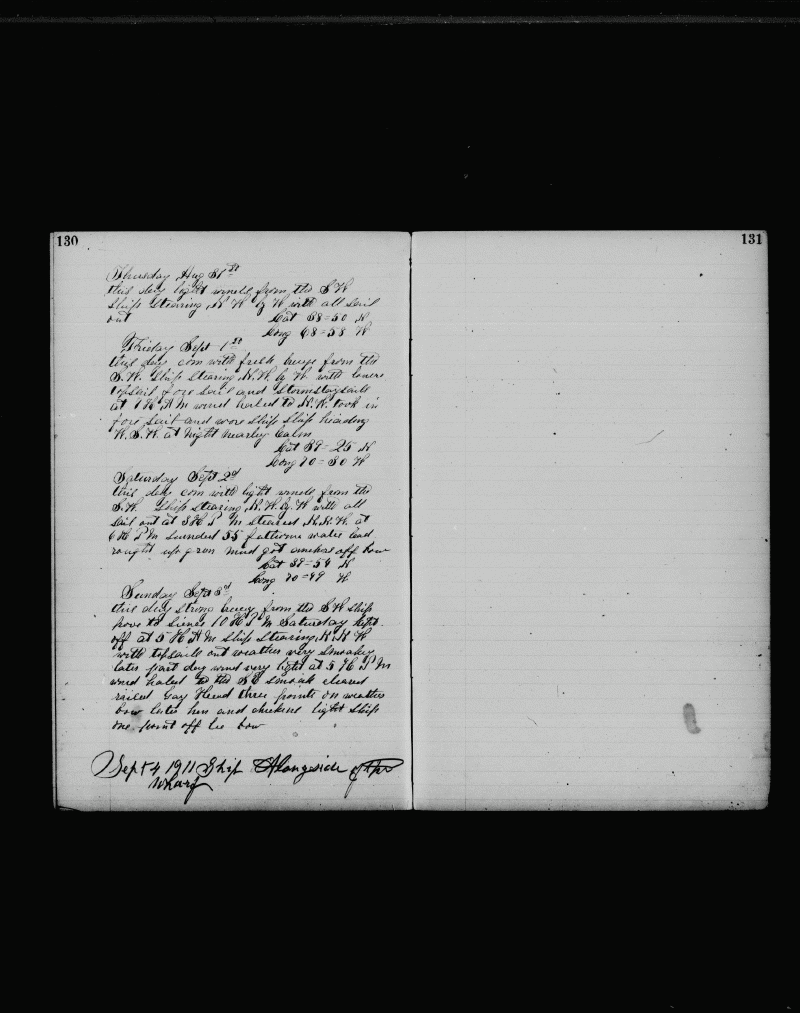 130
Thursday Aug 31st
this day light winds from the S W
Ship Stearing N W by W with all Sail
out Lat 38=50 N
Long 68=58 W
Friday Sept 1st
this day com with fresh breeze from the
S.W. Ship Stearing N.W. by W with lower
topsail fore Sail and Stormstaysails
at 7 H A M wind haled to N.W. took in
fore Sail and wore Ship Ship heading
W.S.W. at Night nearly Calm
Lat 39=25 N
Long 70=30 W
Saturday Sept 2d
this day com with light winds from the
S.W. Ship Stearing N.W. by W with all
Sail out at 3 H P M Steared N.N.W. at
6 H P M Sounded 35 fathoms water lead
rought up green mud got anchor off bow
Lat 39=54 N
Long 70=49 W
Sunday Sept 3d
this day strong breeze from the S W Ship
hove to Sines 10 H P M Saturday kept
off at 5 H A M Ship Stearing N.N.W
with topsails out weather very Smokey
later part day wind very light at 5 H P M
wind haled to the S E Smoak cleared
raised Gay Head three points on weather
bow later hen and chickens light Ship
one point off lee bow
Sept 4 1911 Ship Alongside of the
Wharf
131